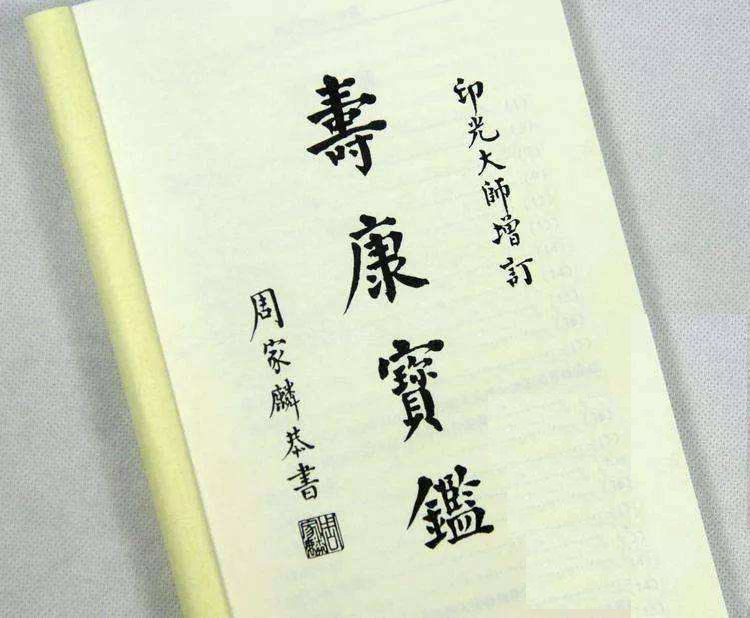 印光大師增訂
壽康寶鑑
周家麟恭書